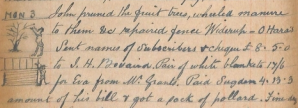 MON 3 John pruned the fruit trees, wheeled manure
to them & repaired fence Widerup - O'Hara's
Sent names of Subscribers & cheque £ 8-5-0
to J. H. Pair of white blankets 17/6
for Eva from Mr. Grant. Paid Sugdon 4.13.3
amount of his bill & got a pack of pollard. Fine day